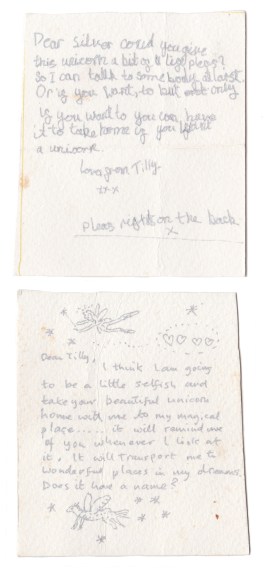 Dear silver could you give
this unicorn a bit of life please
so I can talk to somebody atlast.
Or if you want, to but only
if you want to you can have
it to take home if you want
a unicorn.
Love from Tilly
xxx
pleas right on the back
x
Dear Tilly,
I think I am going
to be a little selfish and
take your beautiful unicorn
home with me to my magical
place...... it will remind me
of you whenever I look at
it. It will transport me to
wonderful places in my dreams.
Does it have a name?